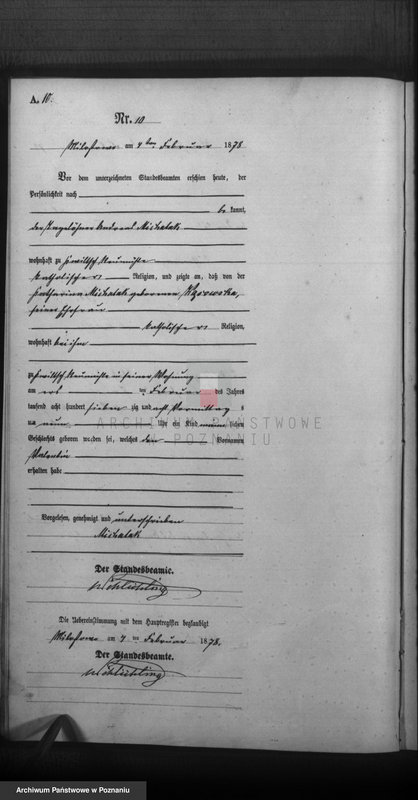 A. 10.
Nr. 10
am 7 ten Februar 1878
Vor dem unterzeichneten Standesbeamten erschien heute, der
Persönlichkeit nach
be kannt,
der Tagelöhner Andreas Michalak
wohnhaft zu
katholischer Religion, und zeigte an, daß von der
Katharina Michalak geborenen
seiner Ehefrau
katholischer Religion,
wohnhaft bei ihm
zu in seiner Wohnung
am ten Februar des Jahres
tausend acht hundert sieben zig und acht Vormittags
um neun Uhr ein Kind männlichen
Geschlechts geboren worden sei, welches den Vornamen
Valentin
erhalten habe
Vorgelesen, genehmigt und unterschrieben
Michalak
Der Standesbeamte.
Die Uebereinstimmung mit dem Hauptregister beglaubigt
am 7 ten Februar 1878.
Der Standesbeamte.
ARCHIWUM PAŃSTWOWE
POZNANIU
Archiwum Państwowe w Poznaniu